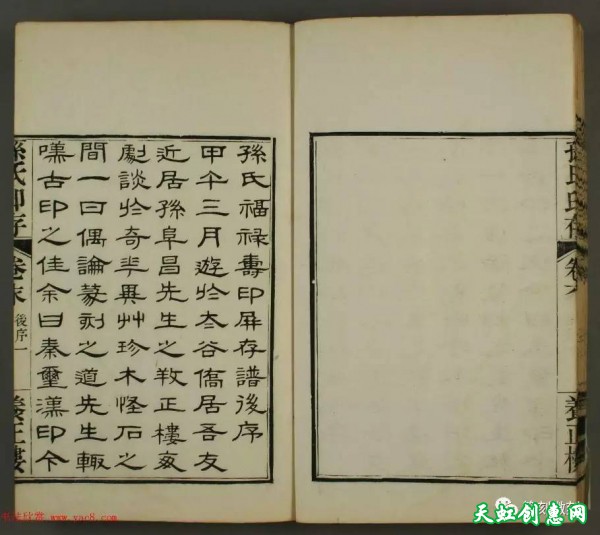 孫氏福祿壽印屏存譜後序
甲午三月遊於太谷僑居吾友
近居孫阜昌先生之𢼝正樓亟
劇談於奇苹異艸珍木怪石之
間一日偶論篆刻之道先生輒
嘆古印之佳余曰秦璽漢印今
孫氏印存
卷末
後序一
養正樓
孫氏印存
卷末
養正樓
书法欣赏 www.yac8.com
天虹创惠网